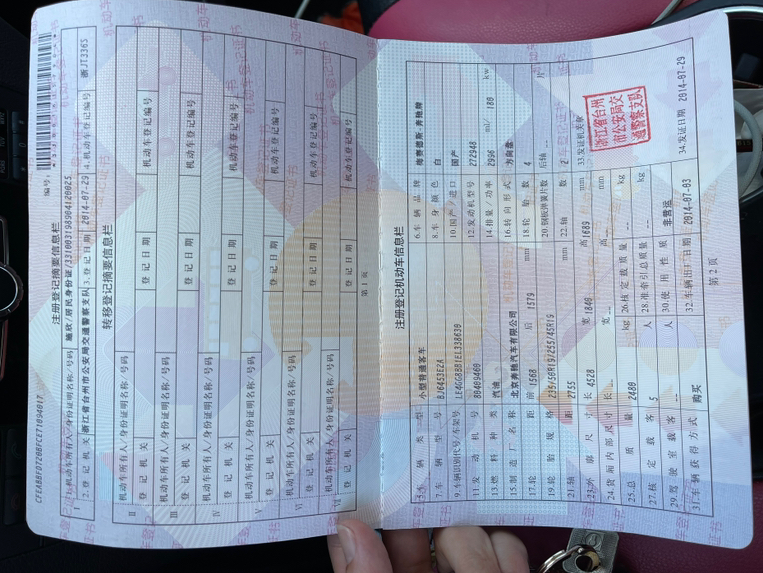 编号:
注册登记摘要信息栏
I 1.机动车所有人/身份证明名称/号码 施欢/居民身份证/331003198904120025
2.登记机关 浙江省台州市公安局交通警察支队 3.登记日期 2014-07-29 4.机动车登记编号 浙JT336S
转移登记摘要信息栏
II 机动车所有人/身份证明名称/号码
登记机关 登记日期 机动车登记编号
III 机动车所有人/身份证明名称/号码
登记机关 登记日期 机动车登记编号
IV 机动车所有人/身份证明名称/号码
登记机关 登记日期 机动车登记编号
V 机动车所有人/身份证明名称/号码
登记机关 登记日期 机动车登记编号
VI 机动车所有人/身份证明名称/号码
登记机关 登记日期 机动车登记编号
VII 机动车所有人/身份证明名称/号码
登记机关 登记日期 机动车登记编号
第 1 页
注册登记机动车信息栏
5.车辆类型 小型普通客车 6.车辆品牌 梅赛德斯-奔驰牌
7.车辆型号 BJ6453EZA 8.车身颜色 白
9.车辆识别代号/车架号 LE4GG8BB1EL338630 10.国产/进口 国产
11.发动机号 80409460 12.发动机型号 272948
13.燃料种类 汽油 14.排量/功率 2996 ml/ 180 kw
15.制造厂名称 北京奔驰汽车有限公司 16.转向形式 方向盘
17.轮距 前 1568 后 1579 mm 18.轮胎数 4
19.轮胎规格 235/50R19/255/45R19 20.钢板弹簧片数 后轴 -- 片
21.轴距 2755 mm 22.轴数 2
23.外廓尺寸 长 4528 宽 1840 高 1689 mm
24.货厢内部尺寸 长 -- 宽 -- 高 -- mm
25.总质量 2480 kg 26.核定载质量 -- kg
27.核定载客 5 人 28.准牵引总质量 -- kg
29.驾驶室载客 -- 人 30.使用性质 非营运
31.车辆获得方式 购买 32.车辆出厂日期 2014-07-03
33.发证机关章
浙江省台州
市公安局交
通警察支队
34.发证日期 2014-07-29
第 2 页